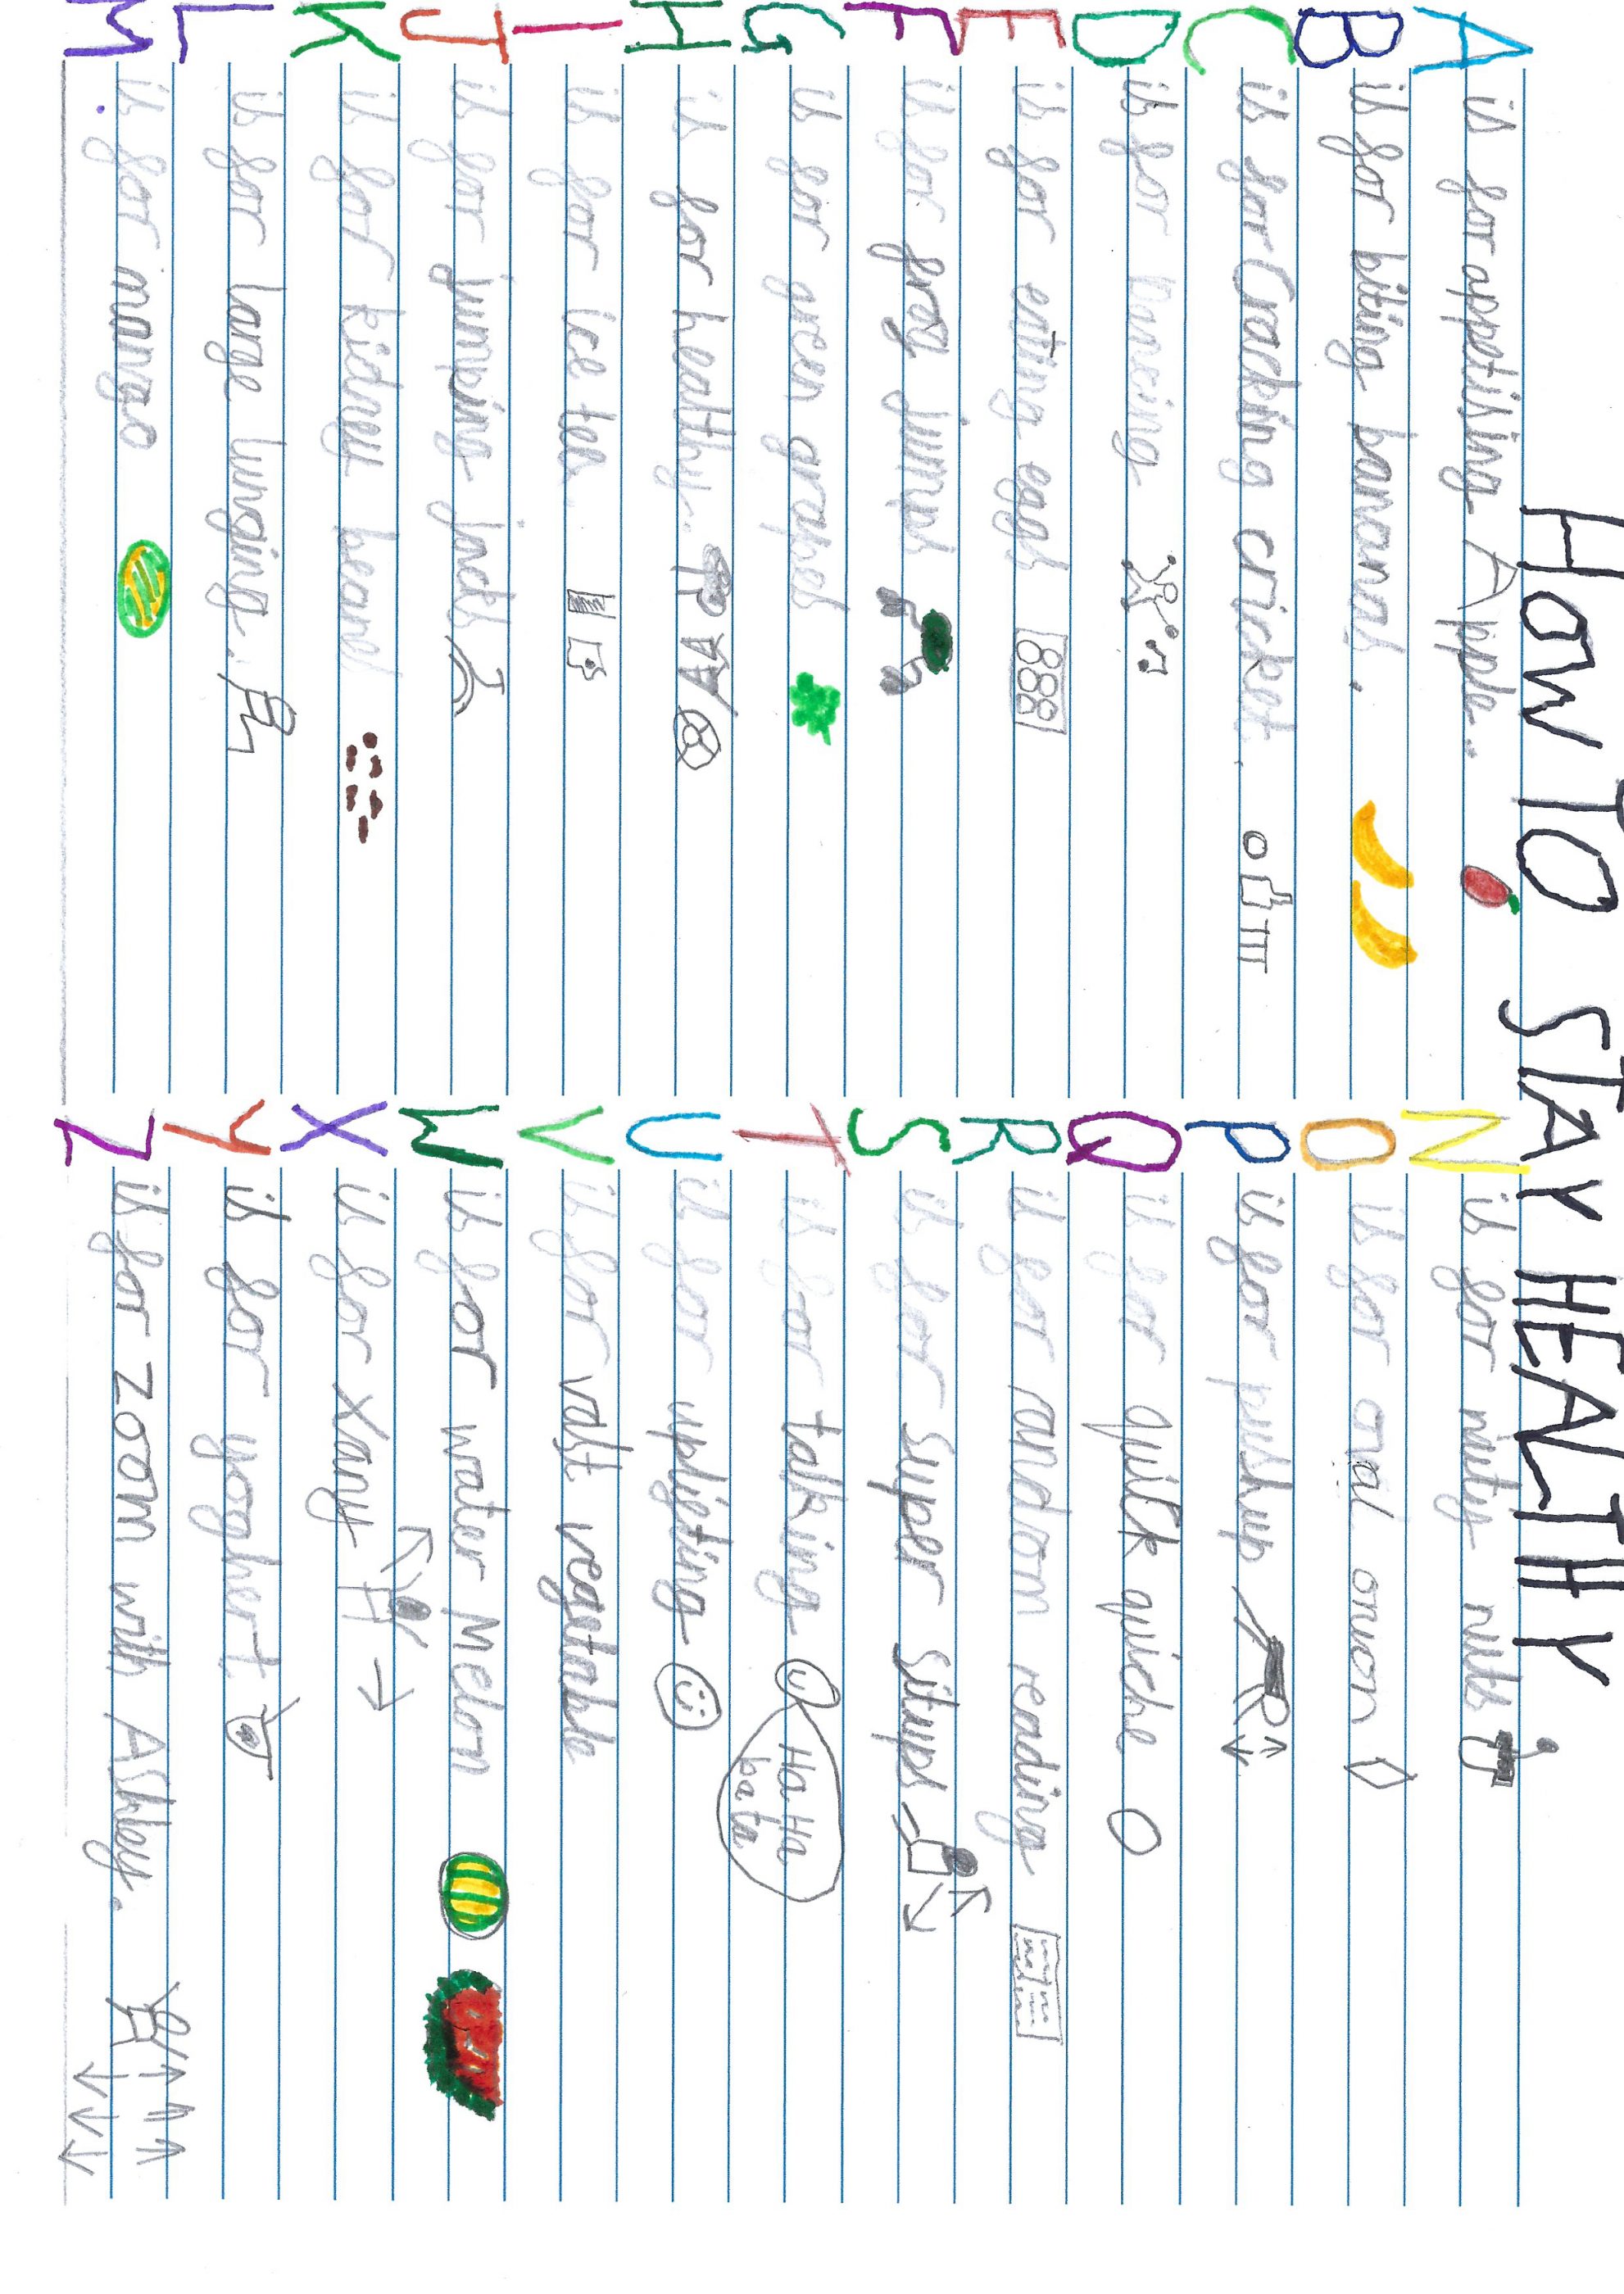 HOW TO STAY HEALTHY
A is for appetising Apple.
B is for biting bananas.
C is for Cracking cricket.
D is for Dancing.
E is for eating eggs
F is for frog jumps
G is for green grapes
H is for healthy.
I is for Ice tea.
J is for jumping jacks
K is for kidney beans
L is for large lunging.
M is for mango
N is for nuty nuts
O is for oval onion
P is for pushup
Q is for quick quiche
R is for random reading
S is for super situps
T is for talking
Ha Ha
U is for uplifting
V is for vast vegtable
W is for water Melon
X is for Xany
Y is for yoghert
Z is for zoom with Ashley.